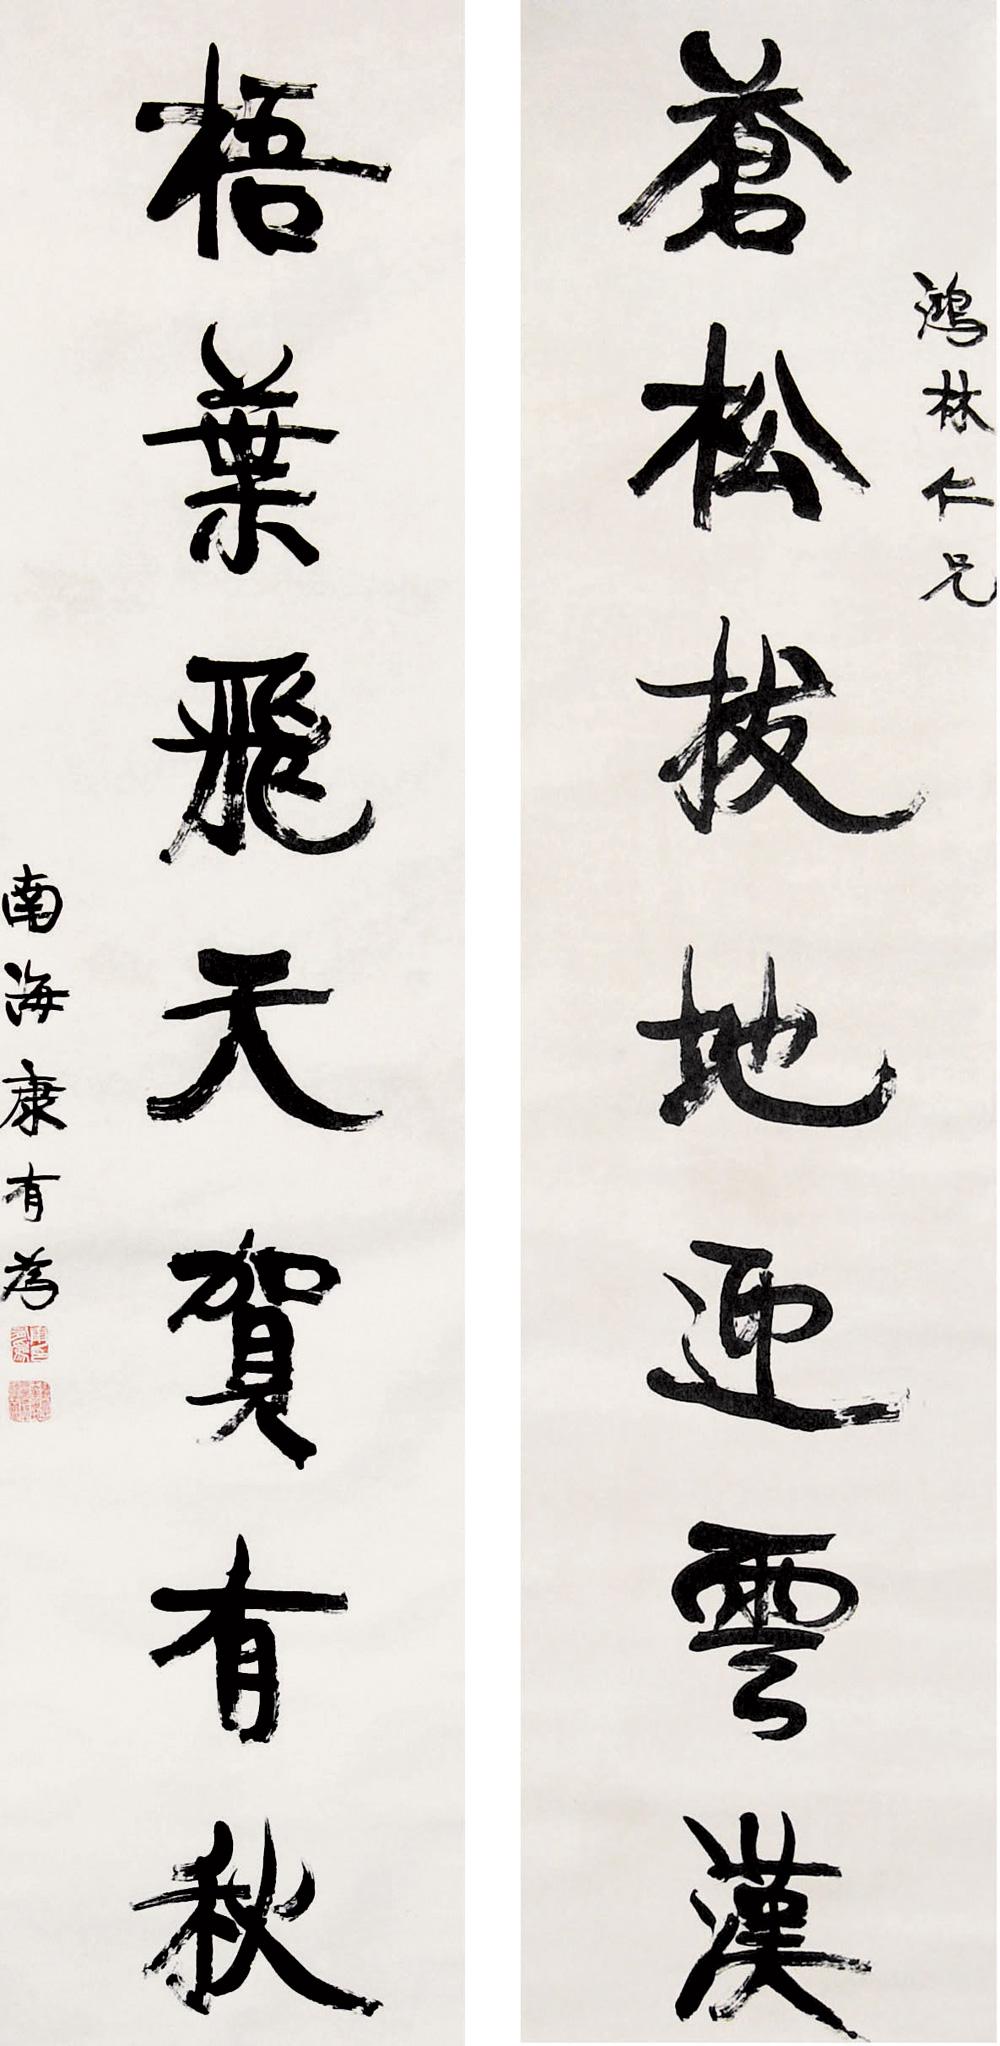 鴻林仁兄
蒼松拔地迎雲漢
梧葉飛天賀有秋
南海康有為